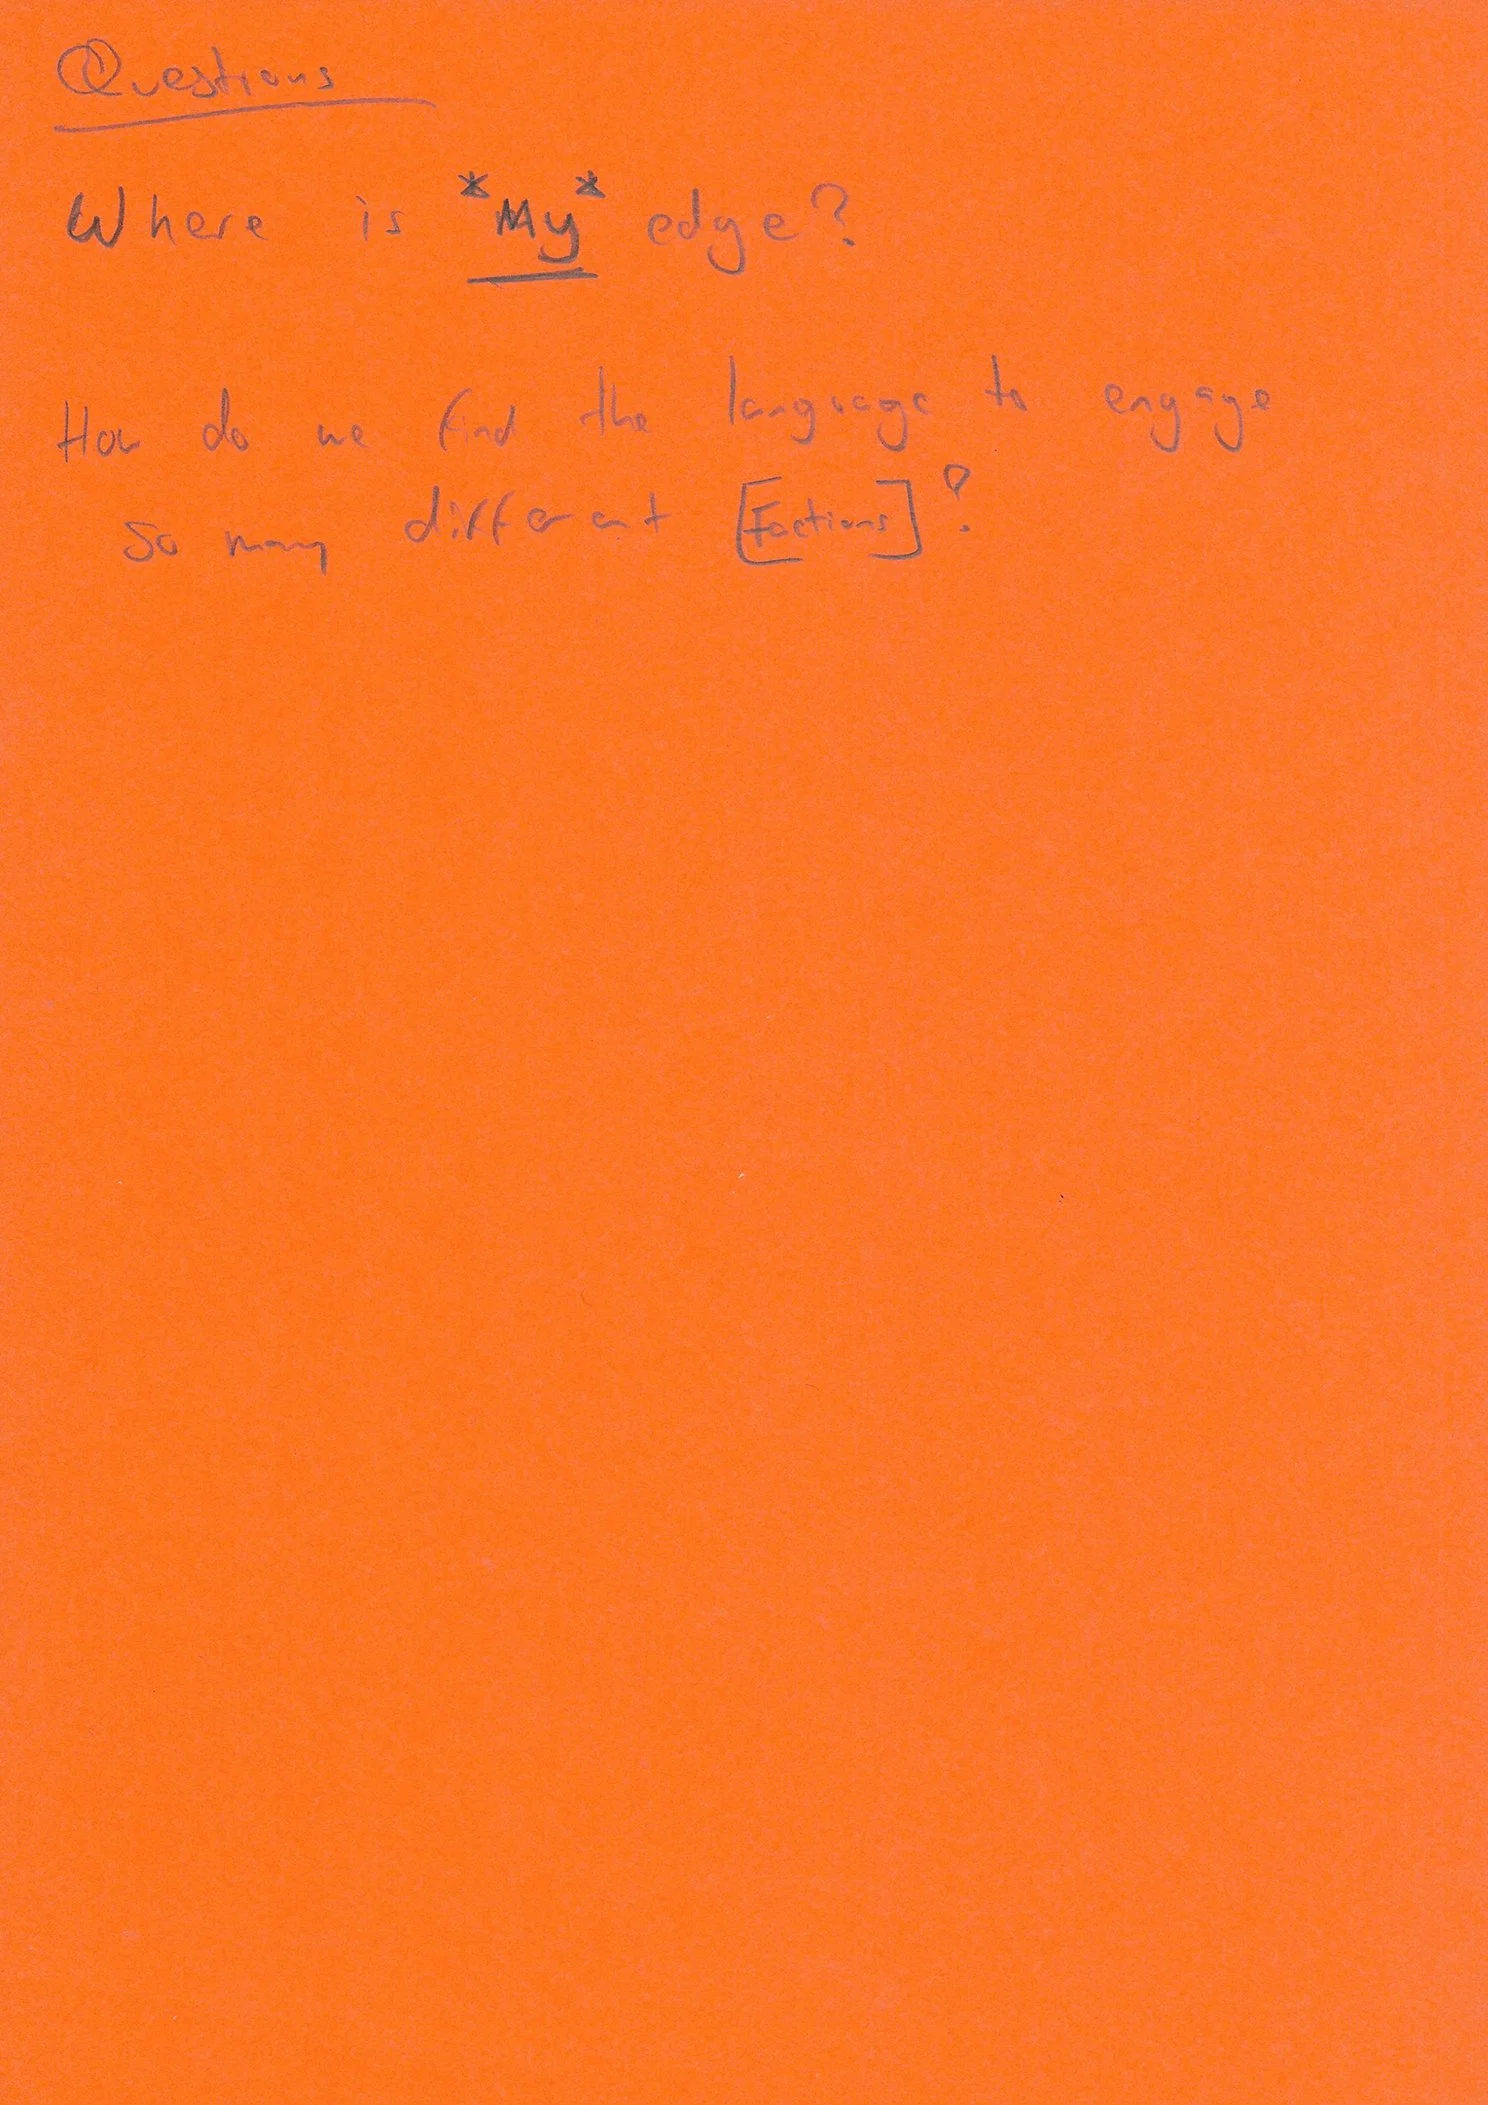 Questions
Where is *My* edge?
How do we find the language to engage
so many different [Factions]?